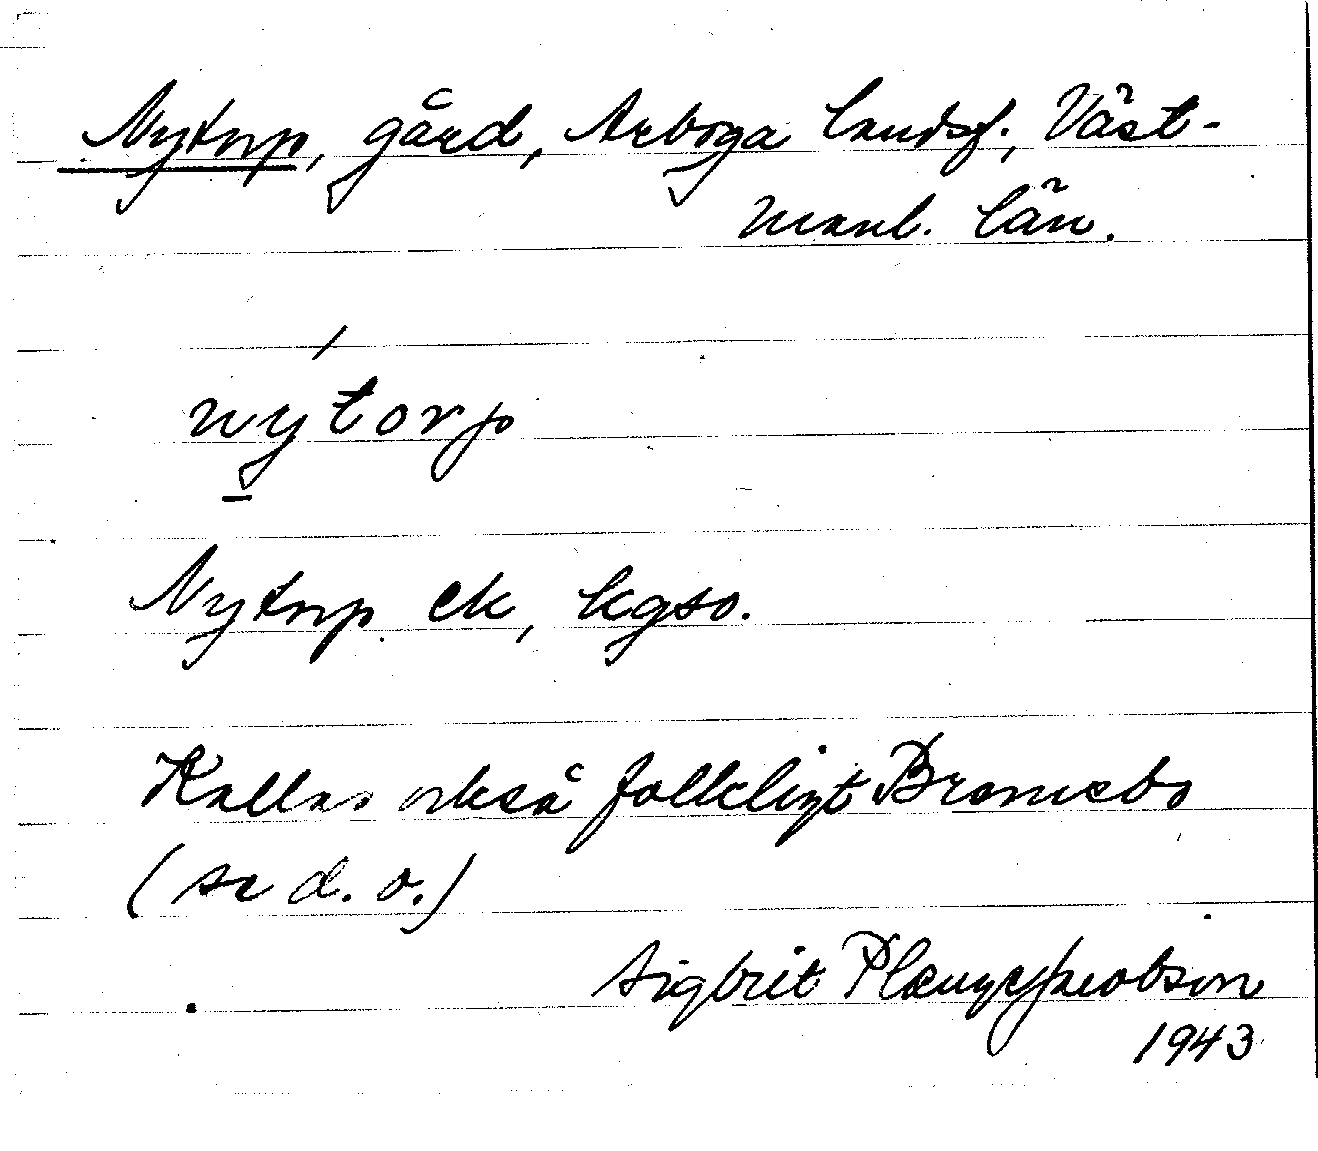 Nytorp, gård, Arboga landsf., Väst-
manl. län.
nytorp
Nytorp ek, kgso.
Kallas också folkligt Bromsebo
(se d. o.)
Sigbrit Plænge Jacobson
1943